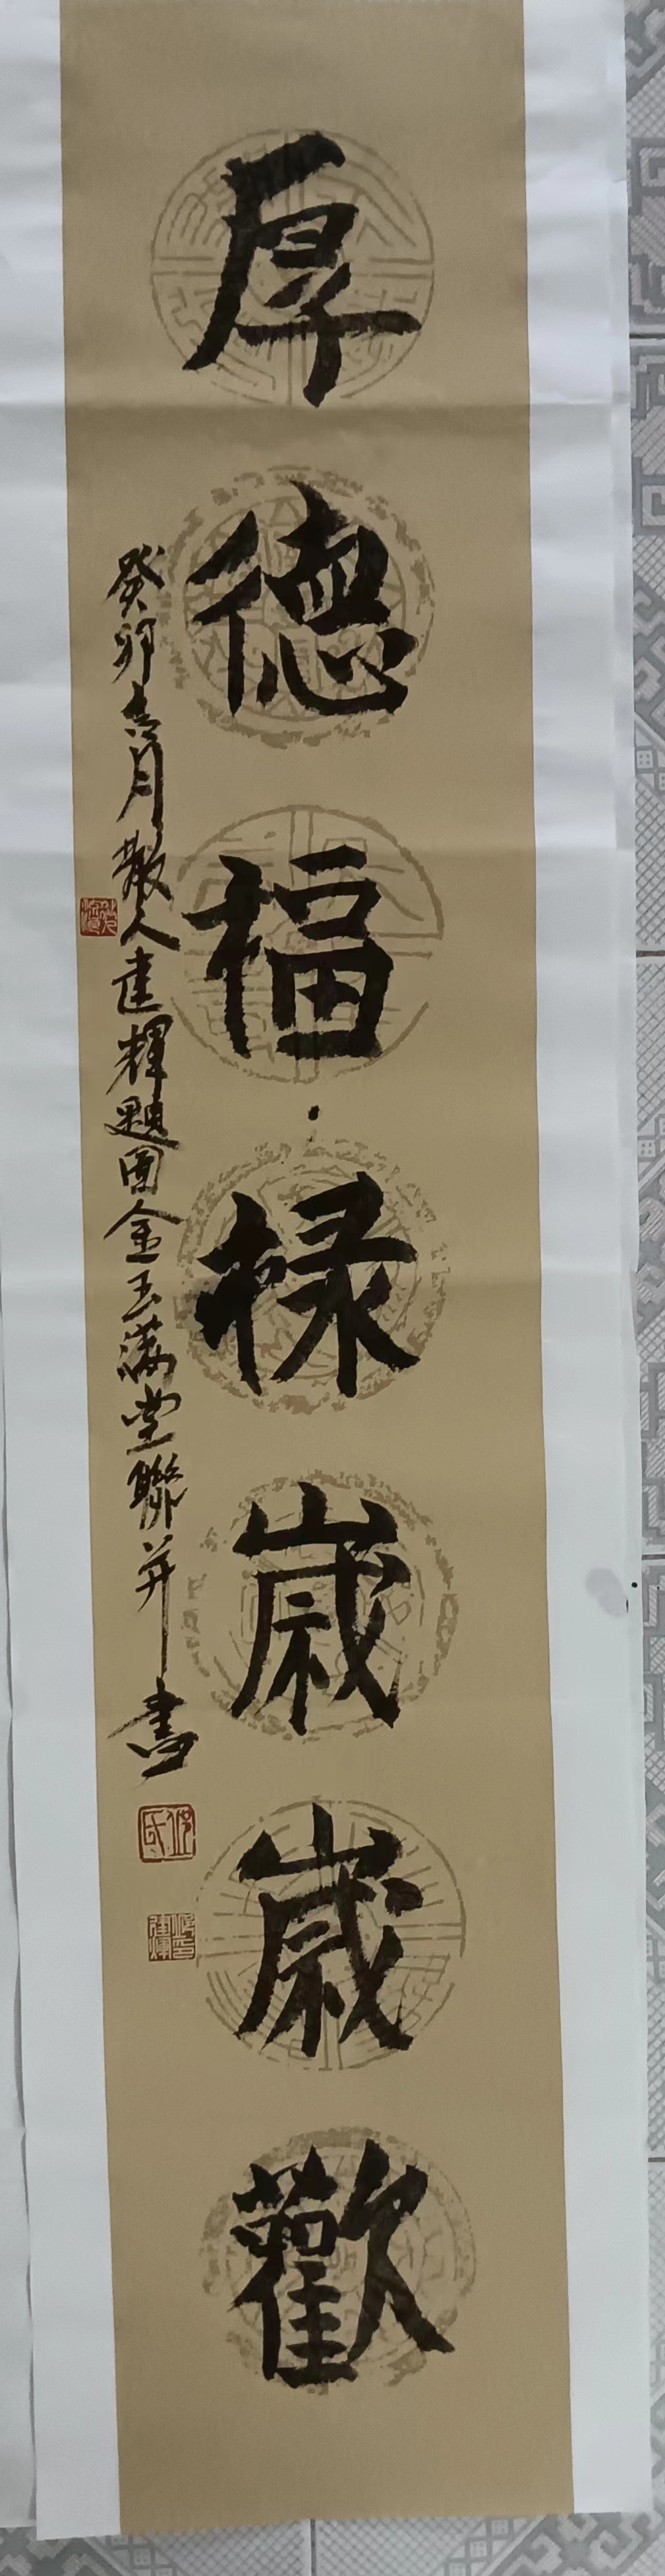 厚德福禄歲歲歡
癸卯吉月散人建輝題圖金玉滿堂聯并書